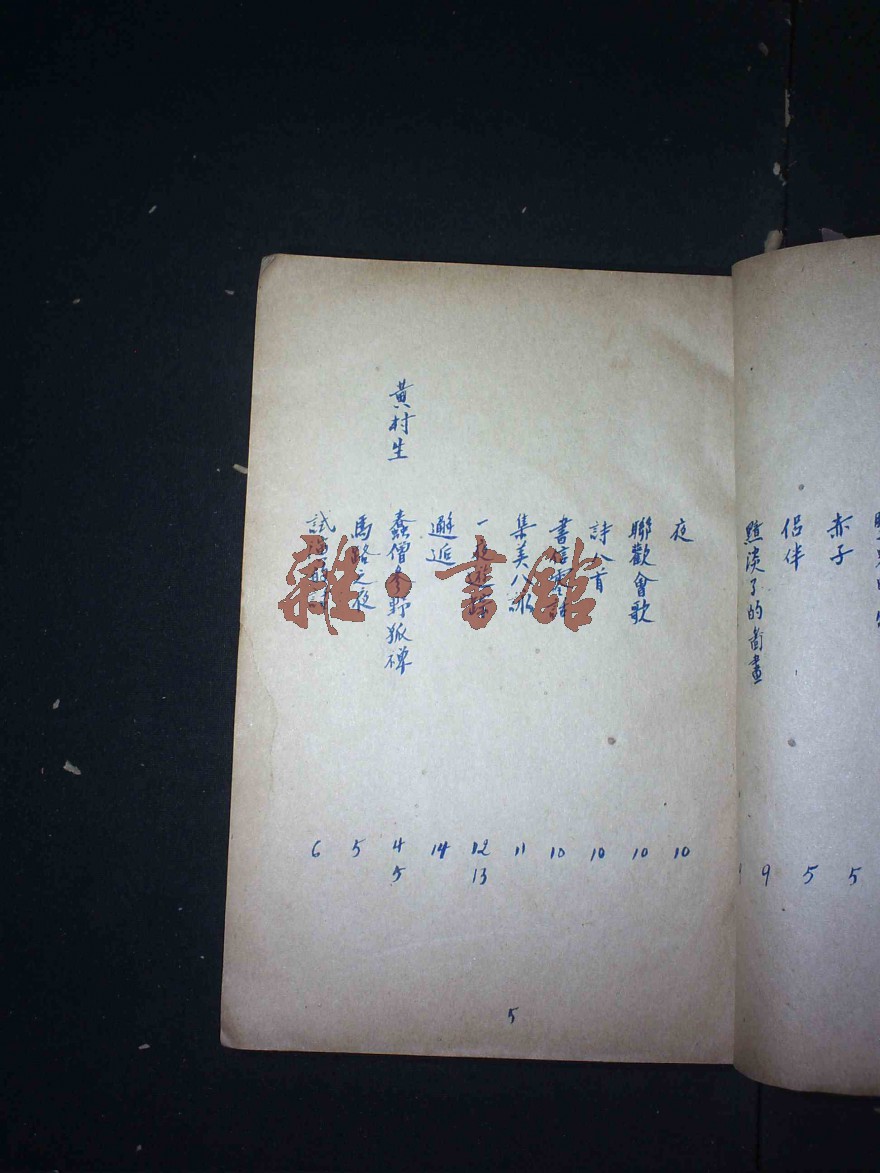 赤子 5
侶伴 5
黯淡了的畫 9
夜 10
聯歡會歌 10
詩八首 10
書信 10
集美八詠 11
一夜遊 12 13
邂逅 14
黃村生
蠢僧參野狐禪 4 5
馬路之夜 5
試 6
5
雜·書館